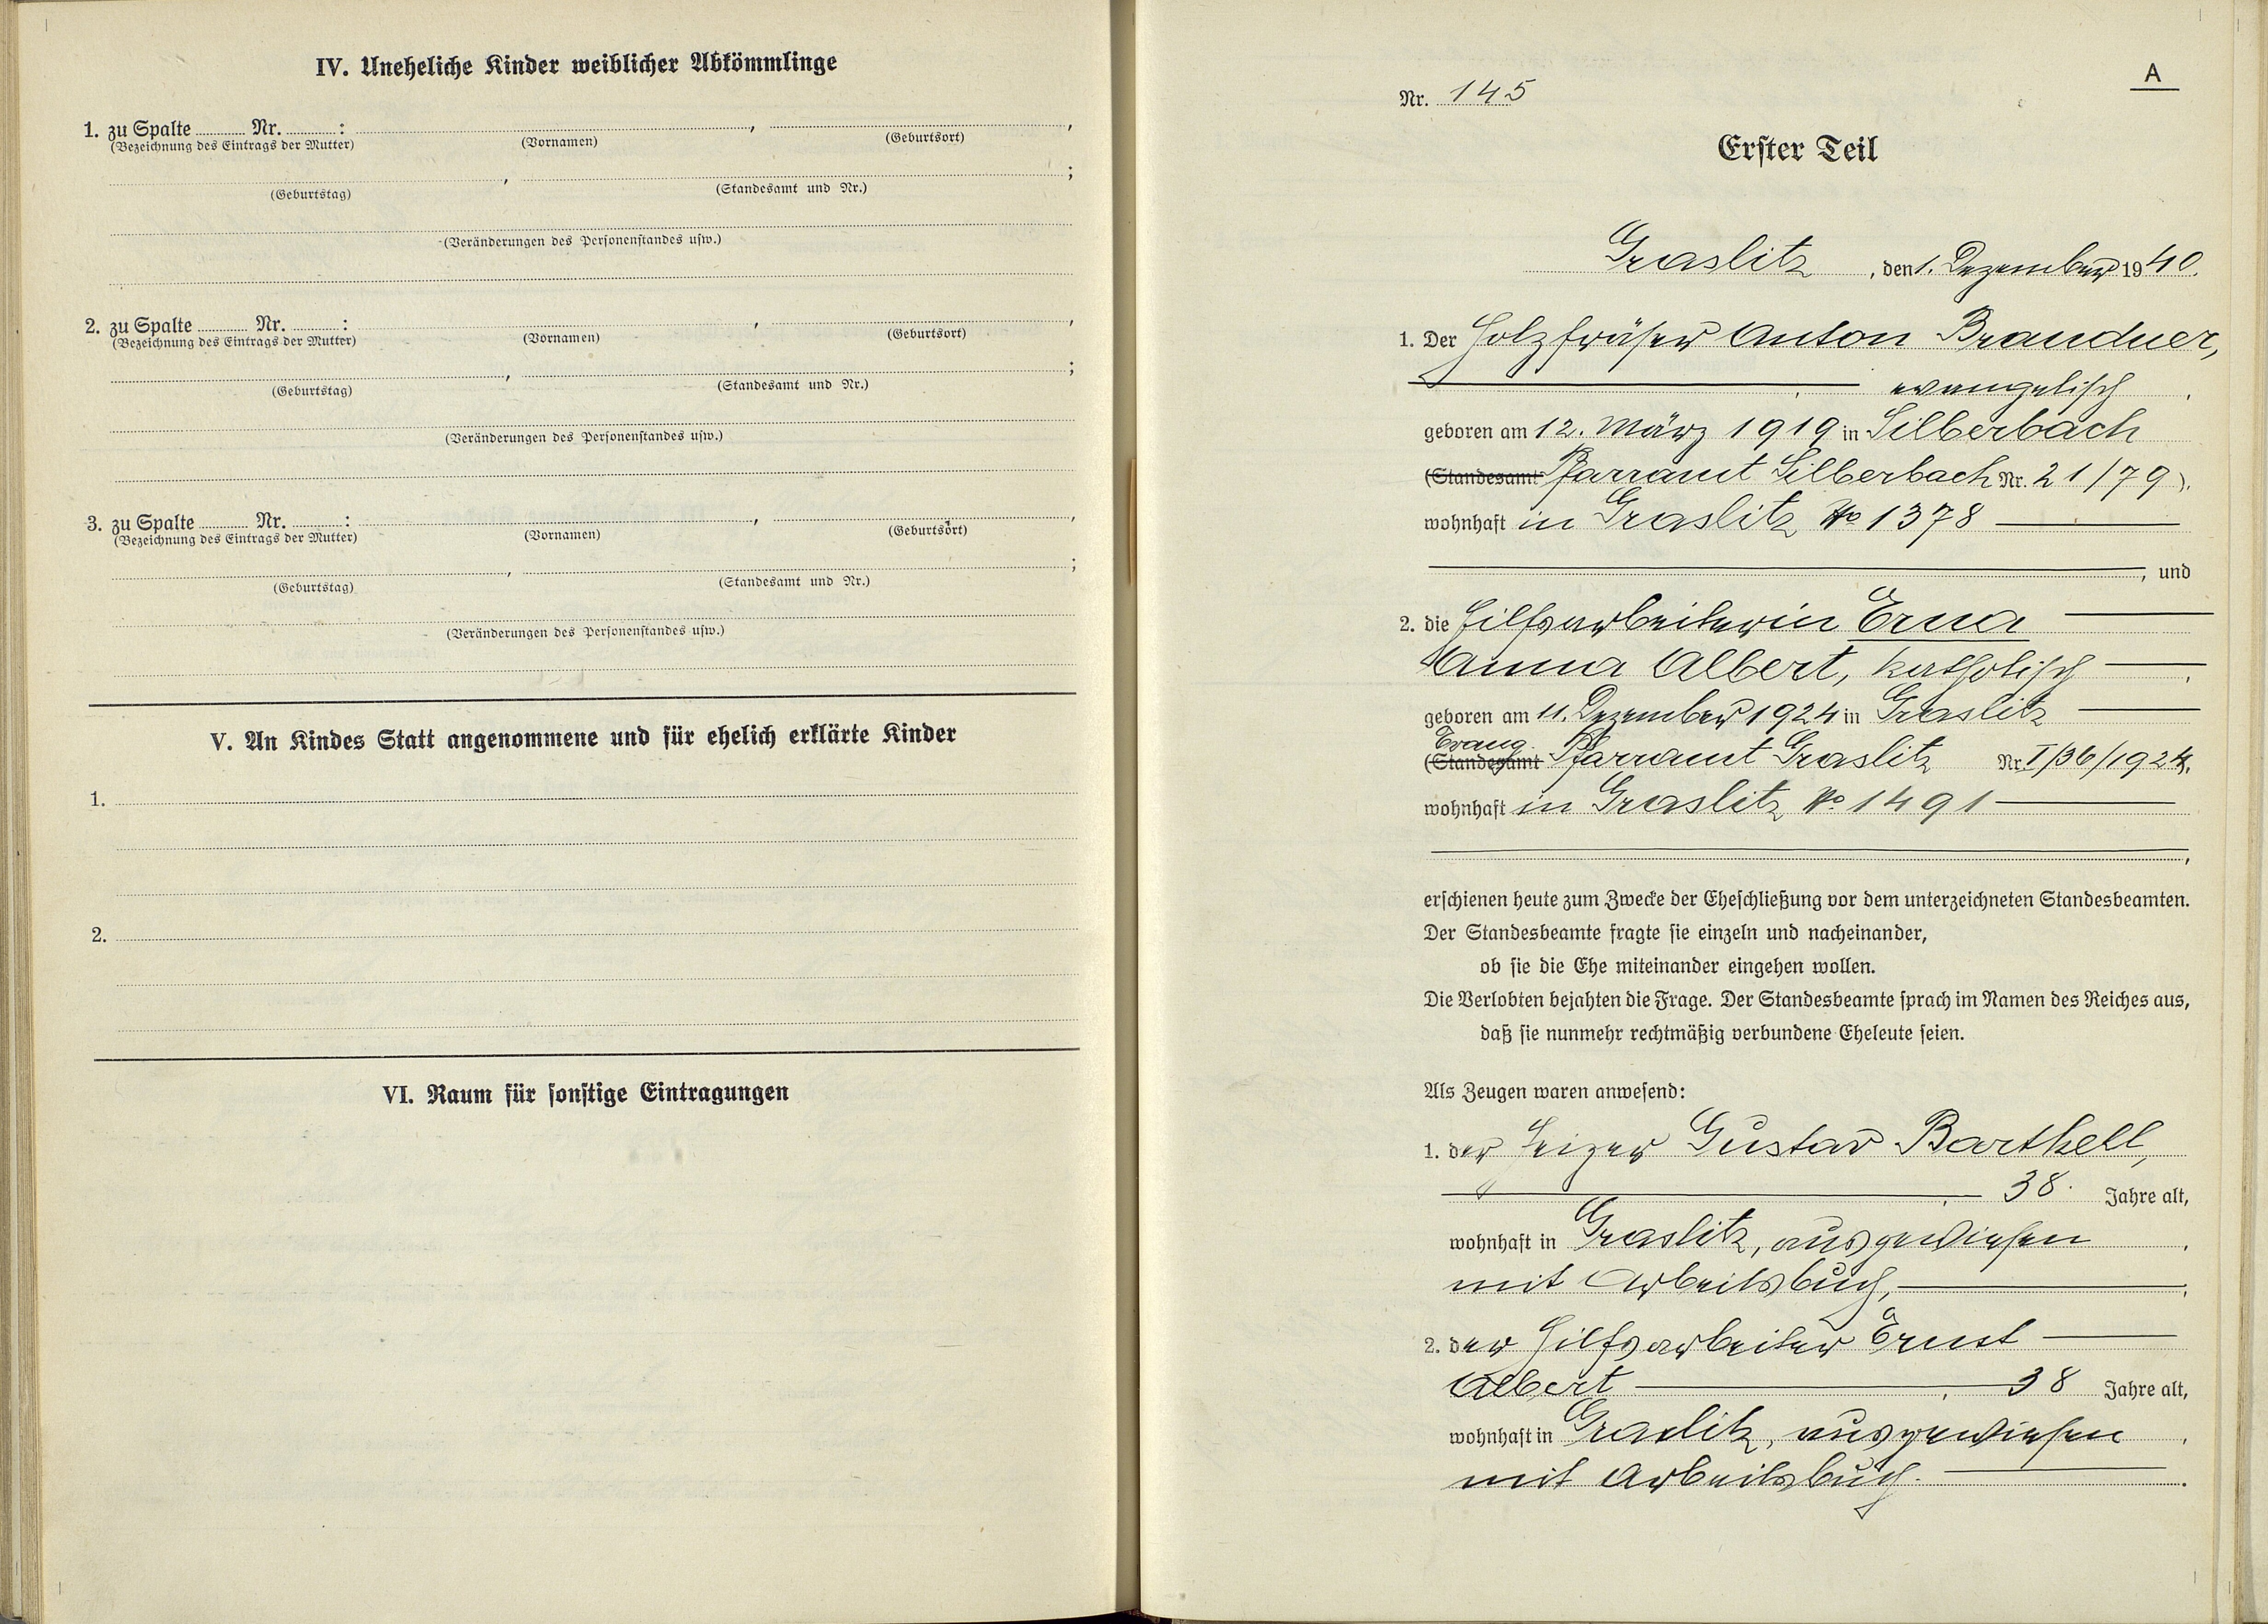 IV. Uneheliche Kinder weiblicher Abkömmlinge
1. zu Spalte ........ Nr. ........ : , ,
(Bezeichnung des Eintrags der Mutter) (Vornamen) (Geburtsort)
, ;
(Geburtstag) (Standesamt und Nr.)
(Veränderungen des Personenstandes usw.)
2. zu Spalte ........ Nr. ........ : , ,
(Bezeichnung des Eintrags der Mutter) (Vornamen) (Geburtsort)
, ;
(Geburtstag) (Standesamt und Nr.)
(Veränderungen des Personenstandes usw.)
3. zu Spalte ........ Nr. ........ : , ,
(Bezeichnung des Eintrags der Mutter) (Vornamen) (Geburtsort)
, ;
(Geburtstag) (Standesamt und Nr.)
(Veränderungen des Personenstandes usw.)
V. An Kindes Statt angenommene und für ehelich erklärte Kinder
1.
2.
VI. Raum für sonstige Eintragungen
A
Nr. 145
Erster Teil
Graslitz, den 1. Dezember 1940.
1. Der Holzfräser Anton Brandner,
evangelisch,
geboren am 12. März 1919 in Silberbach
(Standesamt Pfarramt Silberbach Nr. 21/79),
wohnhaft in Graslitz No 1378
, und
2. die Hilfsarbeiterin Erna
Anna Albert, katholisch,
geboren am 11. Dezember 1924 in Graslitz
Evang.
(Standesamt Pfarramt Graslitz Nr. I/36/1924),
wohnhaft in Graslitz No 1491
,
erschienen heute zum Zwecke der Eheschließung vor dem unterzeichneten Standesbeamten.
Der Standesbeamte fragte sie einzeln und nacheinander,
ob sie die Ehe miteinander eingehen wollen.
Die Verlobten bejahten die Frage. Der Standesbeamte sprach im Namen des Reiches aus,
daß sie nunmehr rechtmäßig verbundene Eheleute seien.
Als Zeugen waren anwesend:
1. der Heizer Gustav Barthell,
, 38 Jahre alt,
wohnhaft in Graslitz, ausgewiesen
mit Arbeitsbuch,
2. der Hilfsarbeiter Ernst
Albert, 38 Jahre alt,
wohnhaft in Graslitz, ausgewiesen
mit Arbeitsbuch.